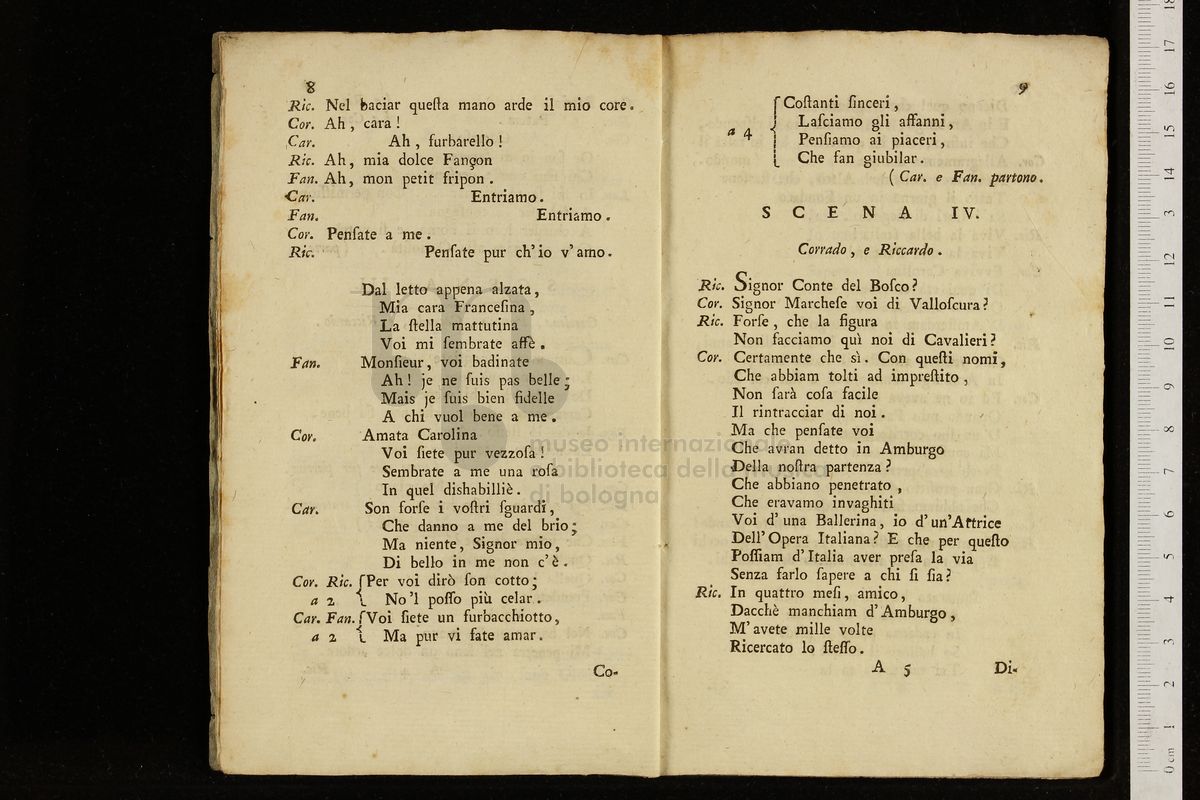 8
Ric. Nel baciar queſta mano arde il mio core.
Cor. Ah, cara!
Car. Ah, furbarello!
Ric. Ah, mia dolce Fançon
Fan. Ah, mon petit fripon.
Car. Entriamo.
Fan. Entriamo.
Cor. Penſate a me.
Ric. Penſate pur ch'io v'amo.
Dal letto appena alzata,
Mia cara Franceſina,
La ſtella mattutina
Voi mi ſembrate affè.
Fan. Monſieur, voi badinate
Ah! je ne ſuis pas belle;
Mais je ſuis bien fidelle
A chi vuol bene a me.
Cor. Amata Carolina
Voi ſiete pur vezzoſa!
Sembrate a me una roſa
In quel dishabilliè.
Car. Son forſe i voſtri ſguardi,
Che danno a me del brio;
Ma niente, Signor mio,
Di bello in me non c'è.
Cor. Ric. { Per voi dirò ſon cotto;
a 2 No'l poſſo più celar.
Car. Fan. { Voi ſiete un furbacchiotto,
a 2 Ma pur vi fate amar.
Co-
9
a 4 { Coſtanti ſinceri,
Laſciamo gli affanni,
Penſiamo ai piaceri,
Che fan giubilar.
( Car. e Fan. partono.
SCENA IV.
Corrado, e Riccardo.
Ric. Signor Conte del Boſco?
Cor. Signor Marcheſe voi di Valloſcura?
Ric. Forſe, che la figura
Non facciamo quì noi di Cavalieri?
Cor. Certamente che sì. Con queſti nomi,
Che abbiam tolti ad impreſtito,
Non ſarà coſa facile
Il rintracciar di noi.
Ma che penſate voi
Che avran detto in Amburgo
Della noſtra partenza?
Che abbiano penetrato,
Che eravamo invaghiti
Voi d'una Ballerina, io d'un'Attrice
Dell'Opera Italiana? E che per queſto
Poſſiam d'Italia aver preſa la via
Senza farlo ſapere a chi ſi ſia?
Ric. In quattro meſi, amico,
Dacchè manchiam d'Amburgo,
M'avete mille volte
Ricercato lo ſteſſo.
A 5 Di-
museo internazionale
e biblioteca della musica
di bologna